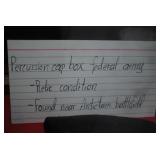 Percussion cap box federal army
- Relic condition
- Found near Antietam battlefield